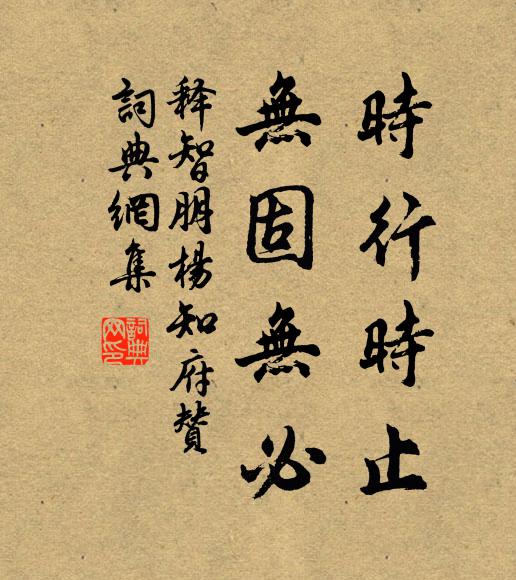 時行時止
無固無必
释智朋楊知府贊
詞典網集
詞典網印